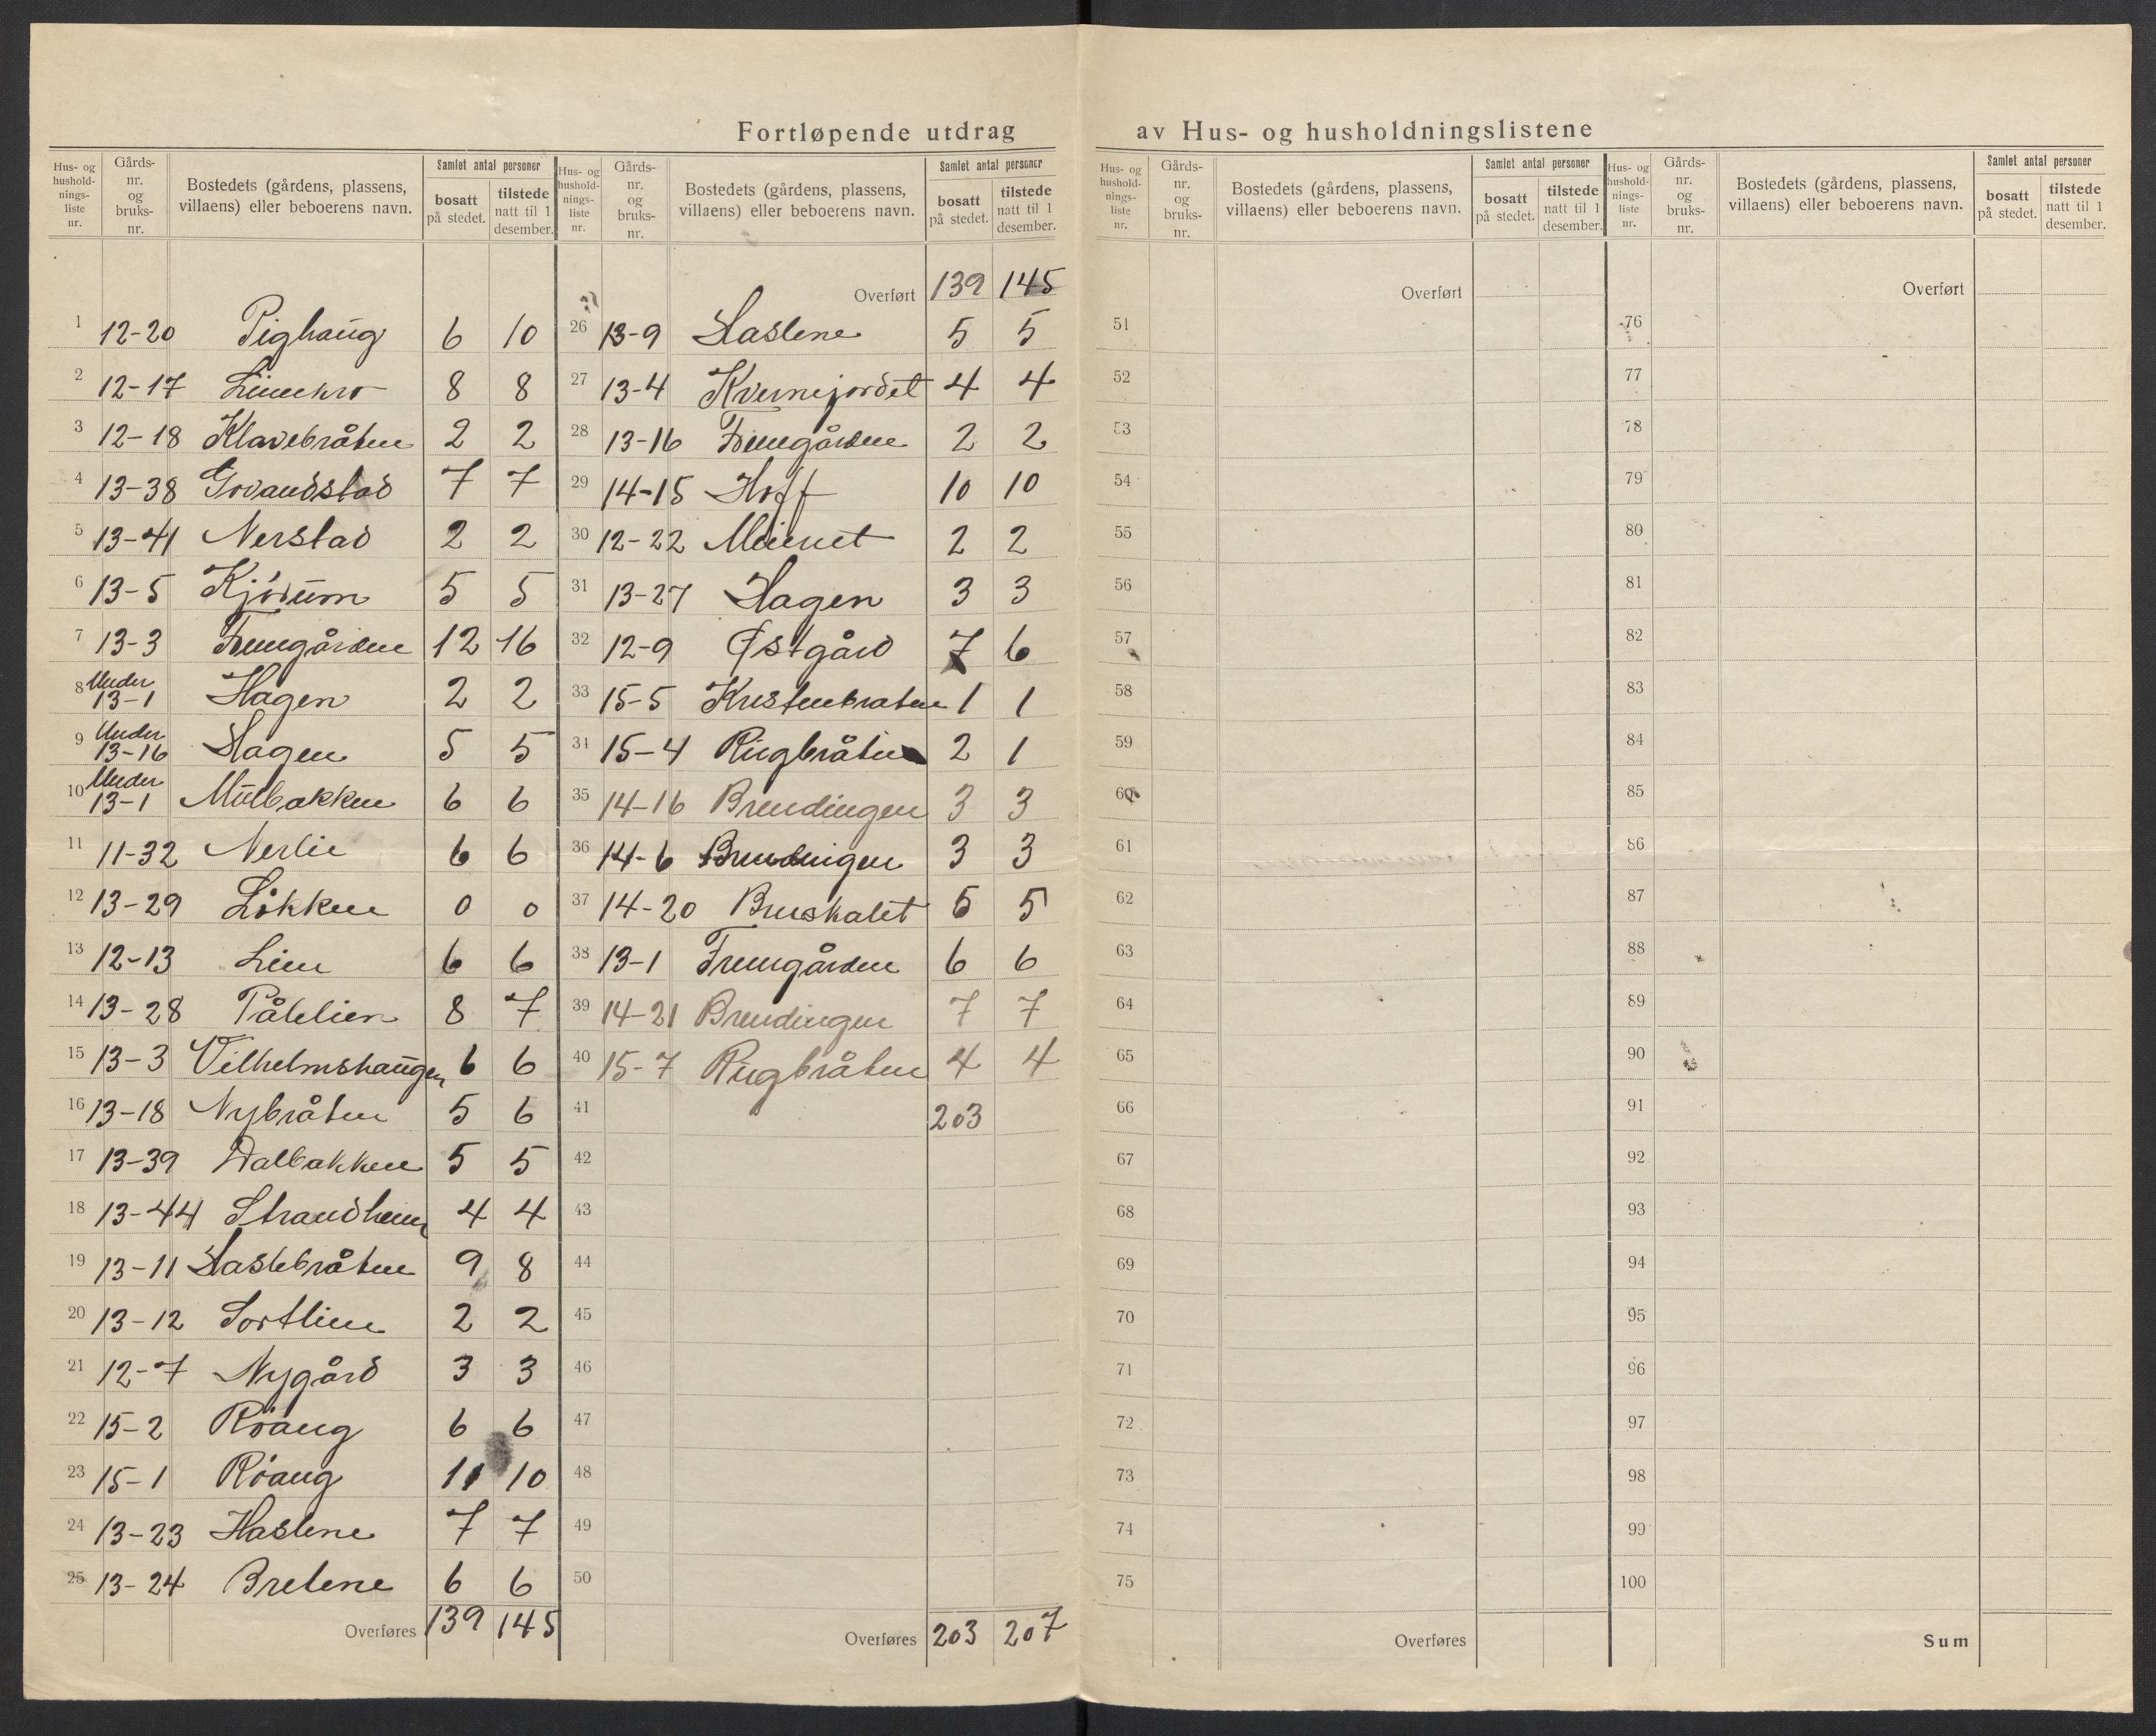 Fortløpende utdrag av Hus- og husholdningslistene
Hus- og hushold-nings-liste nr. Gårds-nr. og bruks-nr. Bostedets (gårdens, plassens, villaens) eller beboerens navn. Samlet antal personer bosatt på stedet. tilstede natt til 1 desember.
1 12-20 Pighaug 6 10
2 12-17 8 8
3 12-18 Klavebråten 2 2
4 13-38 7 7
5 13-41 Nerstad 2 2
6 13-5 5 5
7 13-3 Fremgården 12 16
8 Under 13-1 Hagen 2 2
9 Under 13-16 Hagen 5 5
10 Under 13-1 6 6
11 11-32 Nerlie 6 6
12 13-29 Løkken 0 0
13 12-13 Lien 6 6
14 13-28 Pålelien 8 7
15 13-3 Vilhelmshaugen 6 6
16 13-18 Nybråten 5 6
17 13-39 Dalbakken 5 5
18 13-44 Strandheim 4 4
19 13-11 Haslebråten 9 8
20 13-12 Sortlien 2 2
21 12-7 Nygård 3 3
22 15-2 Röaug 6 6
23 15-1 Röaug 11 10
24 13-23 Haslene 7 7
25 13-24 Bretene 6 6
Overføres 139 145
Hus- og hushold-nings-liste nr. Gårds-nr. og bruks-nr. Bostedets (gårdens, plassens, villaens) eller beboerens navn. Samlet antal personer bosatt på stedet. tilstede natt til 1 desember.
Overført 139 145
26 13-9 Haslene 5 5
27 13-4 Kvernejordet 4 4
28 13-16 Fremgården 2 2
29 14-15 Hoff 10 10
30 12-22 2 2
31 13-27 Hagen 3 3
32 12-9 Østgård 7 6
33 15-5 Kristenbraten 1 1
34 15-4 Ringbråten 2 1
35 14-16 Brendingen 3 3
36 14-6 Brendingen 3 3
37 14-20 Bruskalet 5 5
38 13-1 Fremgården 6 6
39 14-21 Brendingen 7 7
40 15-7 Ringbråten 4 4
41 203
42
43
44
45
46
47
48
49
50
Overføres 203 207
Hus- og hushold-nings-liste nr. Gårds-nr. og bruks-nr. Bostedets (gårdens, plassens, villaens) eller beboerens navn. Samlet antal personer bosatt på stedet. tilstede natt til 1 desember.
Overført
51
52
53
54
55
56
57
58
59
60
61
62
63
64
65
66
67
68
69
70
71
72
73
74
75
Overføres
Hus- og hushold-nings-liste nr. Gårds-nr. og bruks-nr. Bostedets (gårdens, plassens, villaens) eller beboerens navn. Samlet antal personer bosatt på stedet. tilstede natt til 1 desember.
Overført
76
77
78
79
80
81
82
83
84
85
86
87
88
89
90
91
92
93
94
95
96
97
98
99
100
Sum